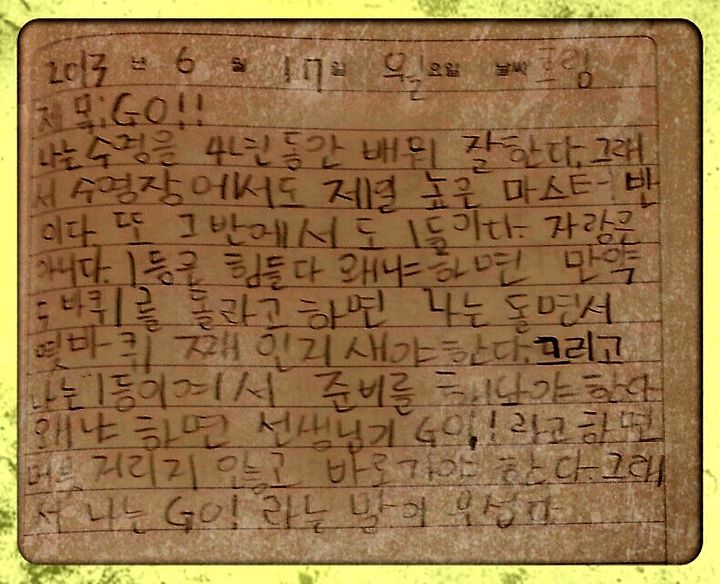 2013 년 6 월 17 일 월 요일 날씨 흐림
제목: GO!!
나는 수영을 4년 동안 배워 잘한다. 그래
서 수영장에서도 제일 높은 마스터 반
이다. 또 그 반에서도 1등이다. 자랑은
아니다. 1등은 힘들다 왜냐하면 만약
바퀴를 돌라고 하면 나는 돌면서
몇바퀴 째 인지 새야한다. 그리고
나는 1등이여서 준비를 하야한다
왜냐하면 선생님이 GO!! 라고 하면
거리지 않고 바로 가야 한다. 그래
서 나는 GO! 라는 말이 무섭다